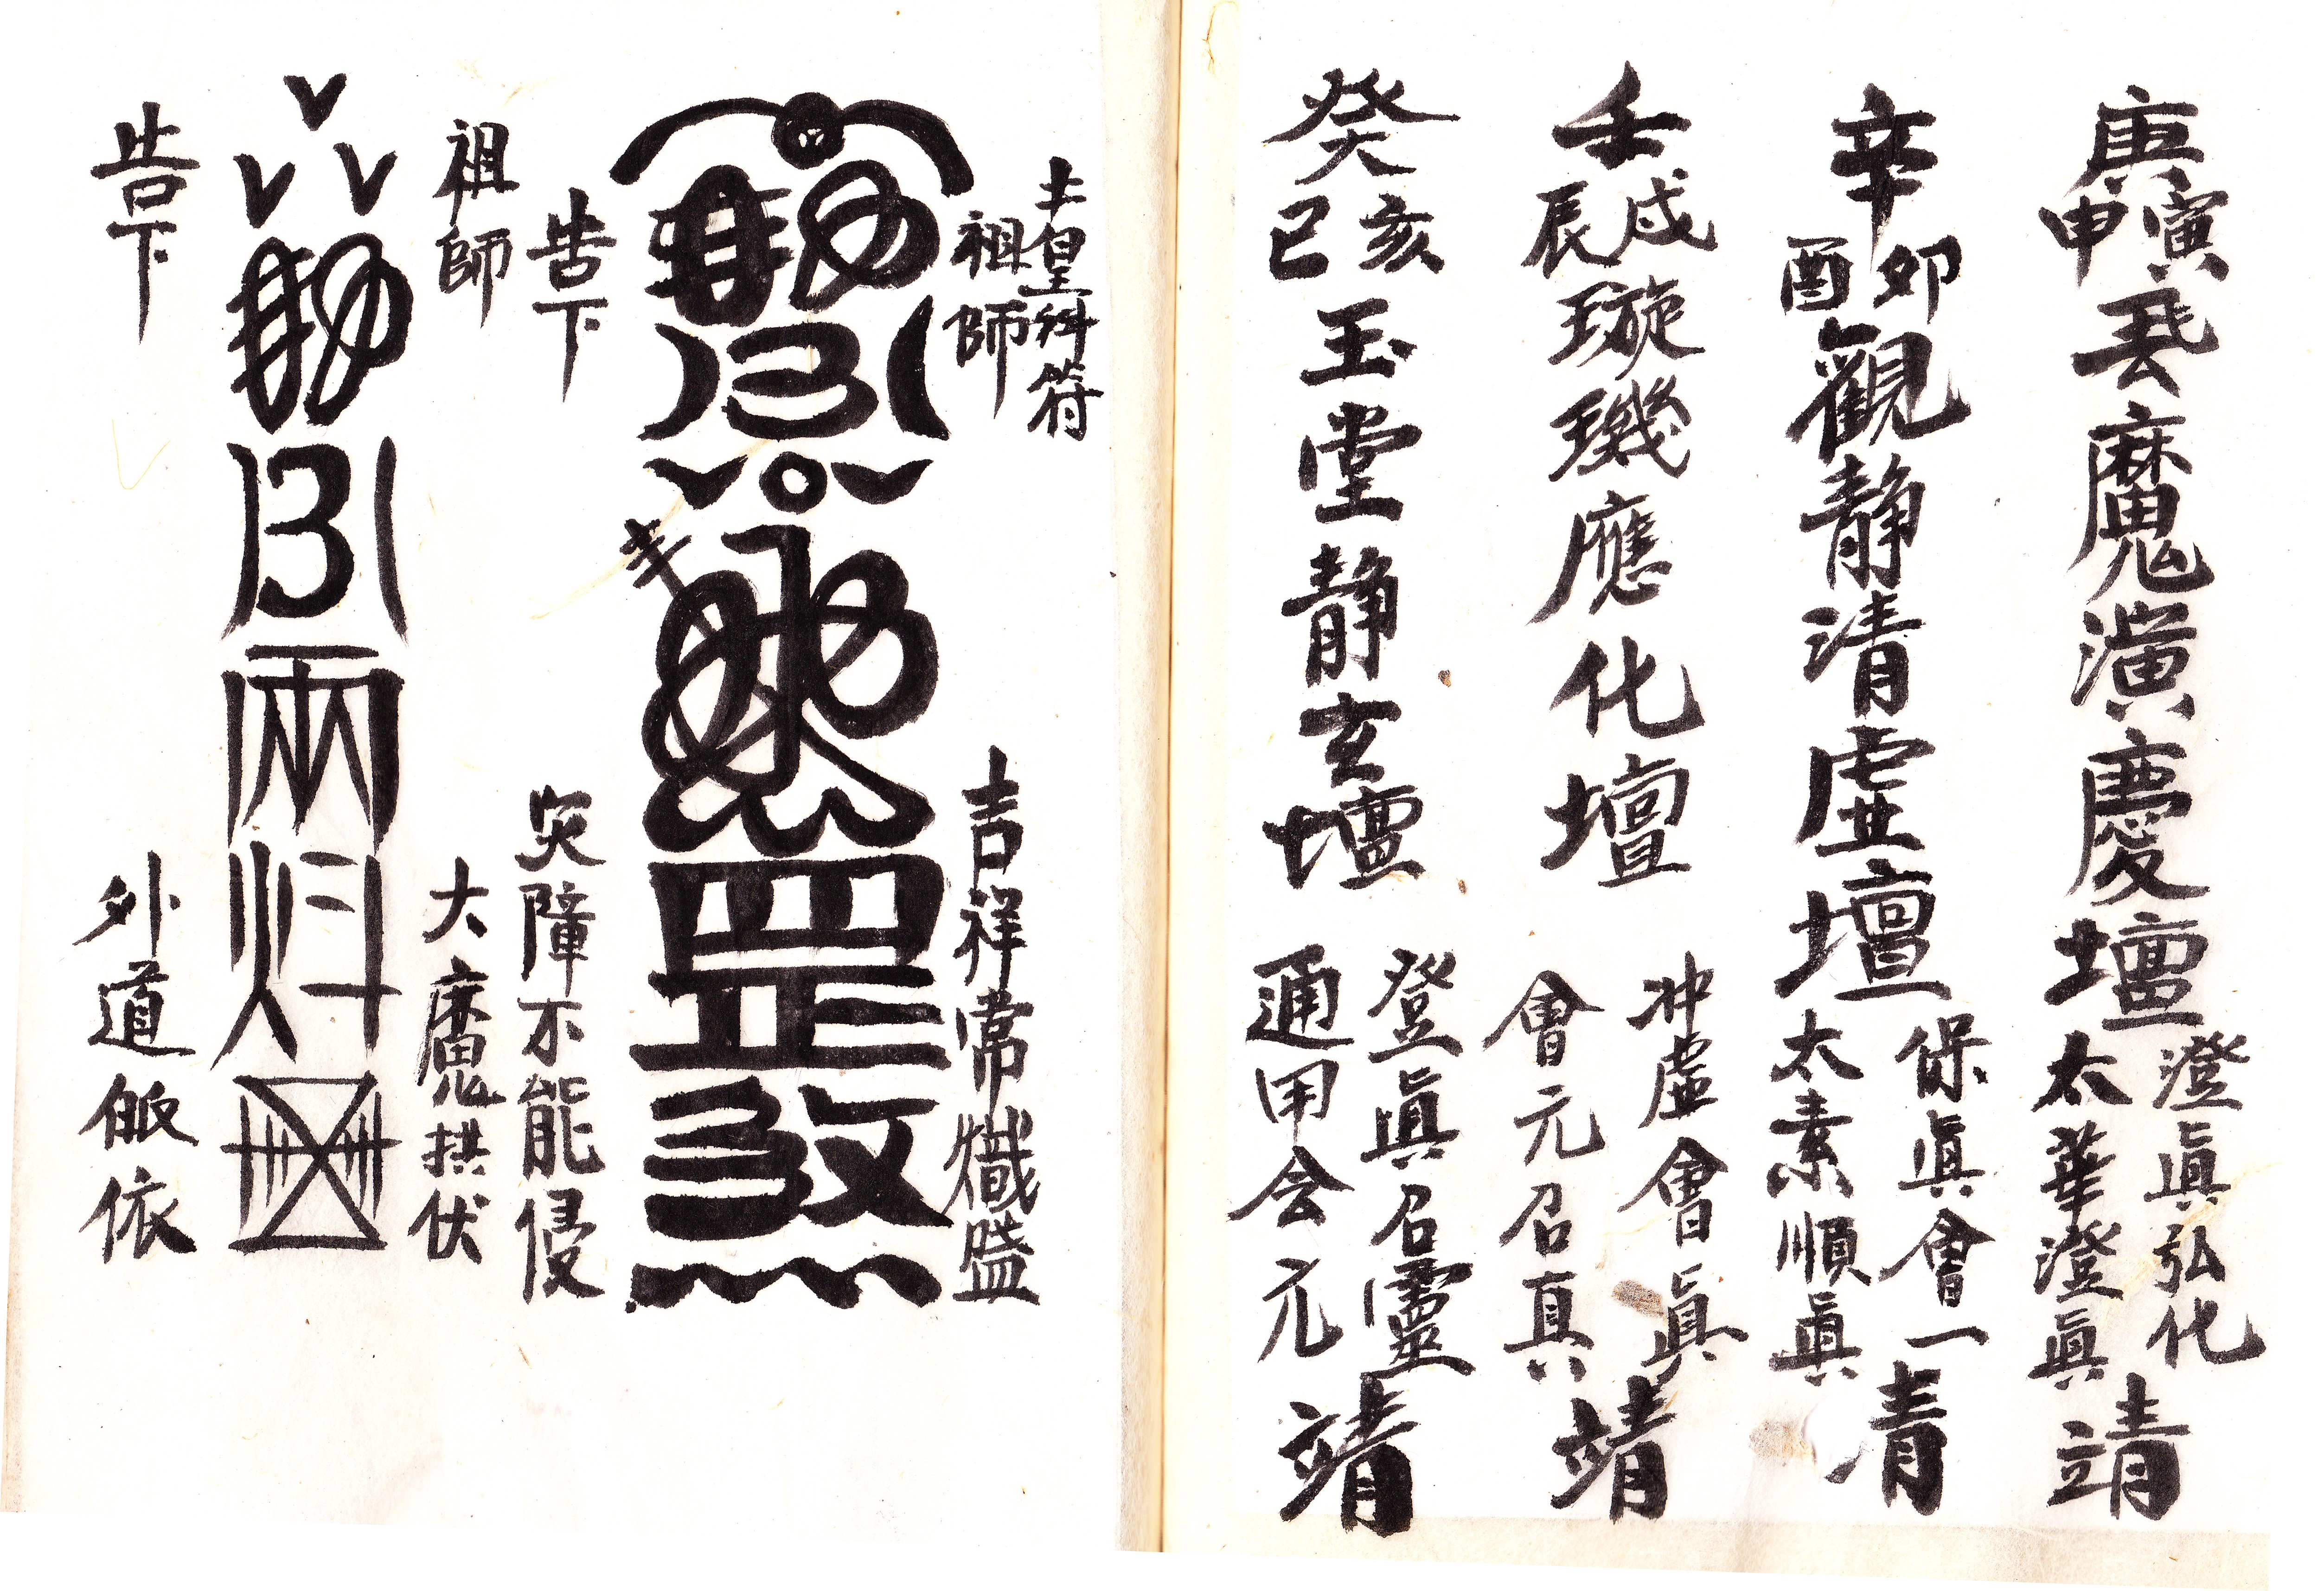 庚寅申
魔演慶壇
澄眞弘化
太華澄眞
靖
辛卯酉
觀静清虚壇
保眞會一
太素順眞
青
壬戌辰
璇璣應化壇
冲虚會眞
會元召真
靖
癸亥巳
玉堂静玄壇
登眞召靈
通用会元
靖
土皇科符
祖師
吉祥常熾盛
告下
災障不能侵
祖師
大魔拱伏
告下
外道皈依